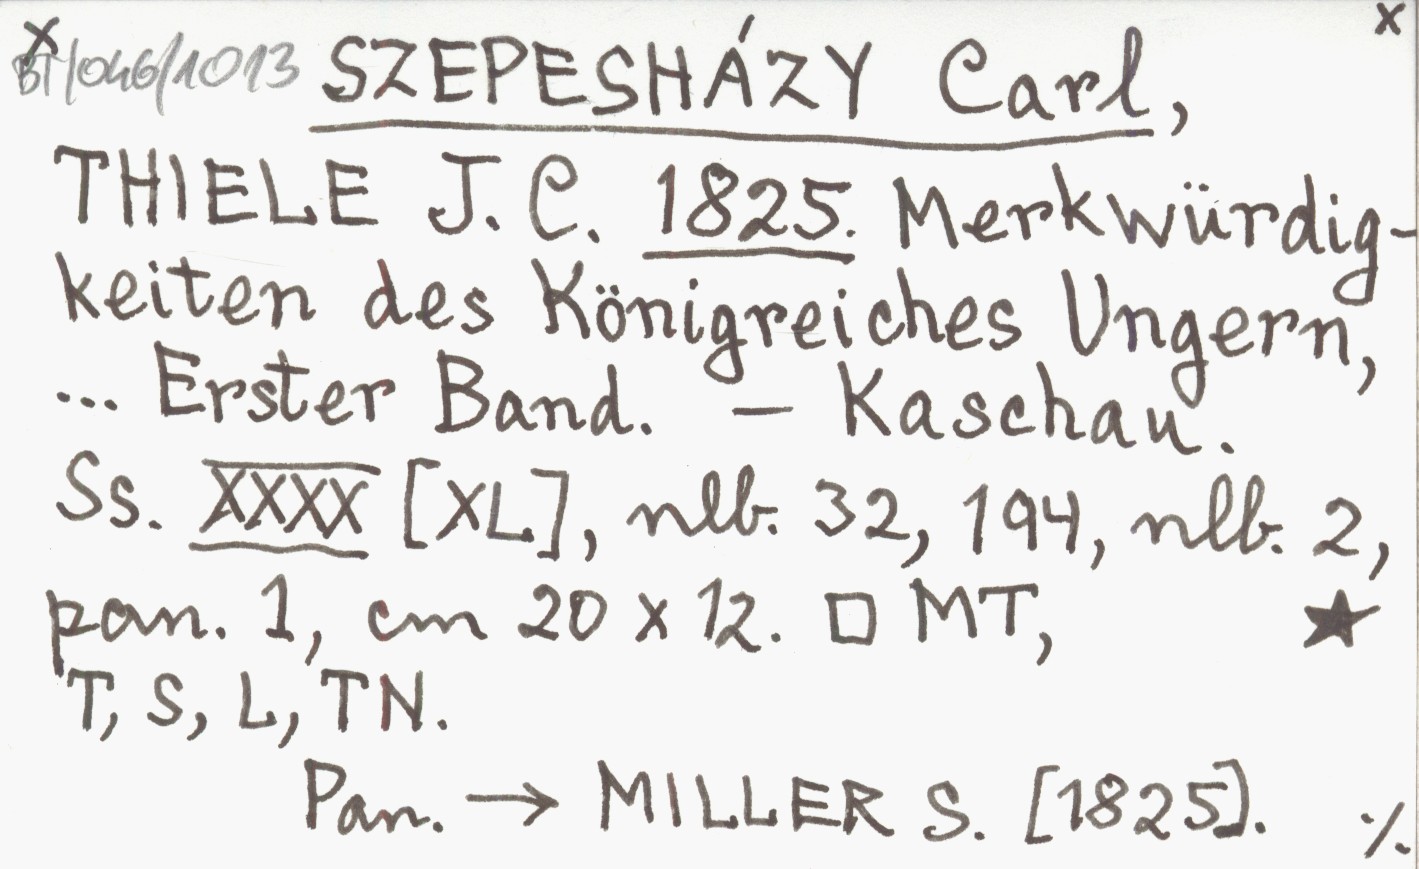 x x
BT/046/1013 SZEPESHÁZY Carl,
THIELE J. C. 1825. Merkwürdig-
keiten des Königreiches Ungern,
... Erster Band. – Kaschau.
Ss. XXXX [XL], nlb. 32, 194, nlb. 2,
pan. 1, cm 20 x 12. □ MT, ★
T, S, L, TN.
Pan. → MILLER S. [1825]. ·/.